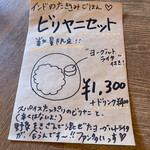 インドのたきこみごはん♡
ビリヤニセット
数量限定!!
ヨーグルト
ライタ
付き!
¥1,300
+ドリンク¥400
スパイスたっぷりのビリヤニと、
(辛くはないよ)
野菜をきざんで混ぜたヨーグルトライタ
が、合うんです~!! ファン多いっす